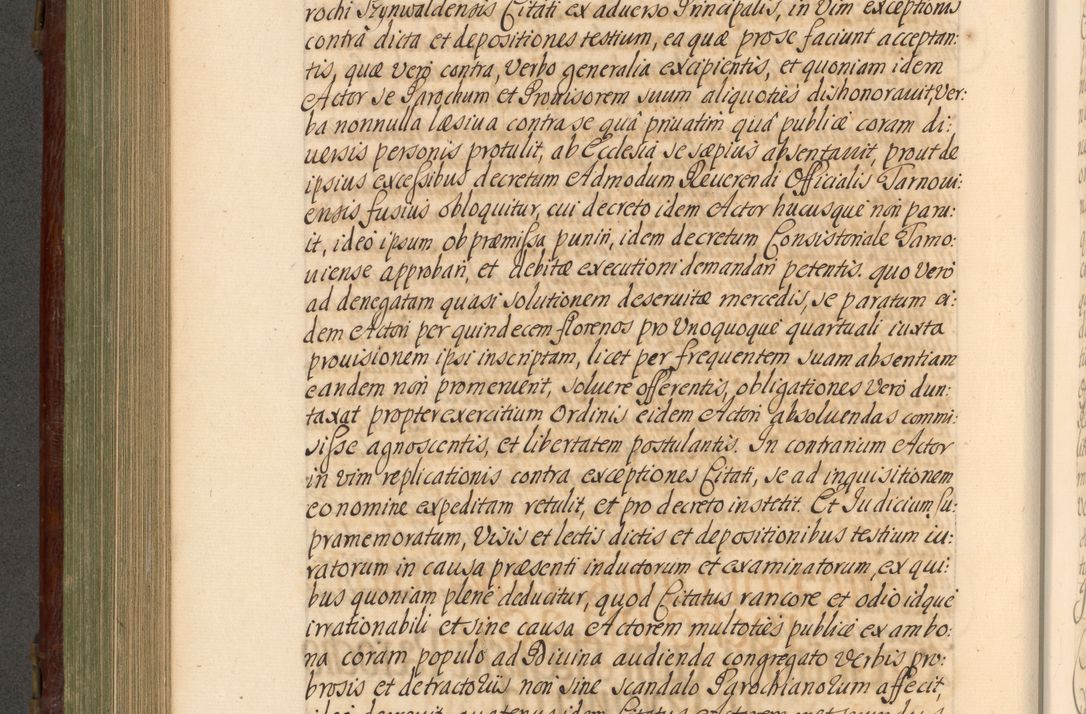 rochi Rynwaldensis Citati ex adverso Principalis, in vim exceptionis
contrà dicta et depositiones testium, ea quæ pro se faciunt acceptan:
tis, quæ verò contra, verbo generalia excipientis, et quoniam idem
Actor se Parochum et Provisorem suum aliquoties dishonorauit, Ver:
ba nonnulla læsiua contra se quà priuatim quà publicè coram di:
uersis personis protulit, ab Ecclesia se sæpius absentauit, prout de
ipsius excessibus decretum Admodum Reuerendi Officialis Tarnoui:
ensis fusius obloquitur, cui decreto idem Actor hucusque non paru:
it, ideo ipsum ob præmissa puniri, idem decretum Consistoriale Tarno:
uiense approbari, et debitæ executioni demandari petentis. quo verò
ad denegatam quasi solutionem deseruitæ mercedis, se paratum ei:
dem Actori per quindecem florenos pro Unoquoque quartuali iuxta
prouisionem ipsi inscriptam, licet per frequentem suam absentiam
eandem non promeruerit, soluere offerentis, obligationes verò dun:
taxat propter exercitium Ordinis eidem Actori absoluendas commi:
sisse agnoscentis, et libertatem postulantis. In contrarium Actor
in vim replicationis contra exceptiones Citati, se ad inquisitionem
eo nomine expeditam retulit, et pro decreto institit. Et Iudicium Su:
pramemoratum, Visis et lectis dictis et depositionibus testium iu:
ratorum in causa præsenti inductorum et examinatorum, ex qui:
bus quoniam plenè deducitur, quod Citatus rancore et odio idque
irrationabili et sine causa Actorem multoties publicè ex ambo:
na coram populo ad Diuina audienda congregato verbis pro:
brosis et detractoriis non sine scandalo Parochianorum affecit,
ideo decreuit, quatenus idem Citatus Actorem